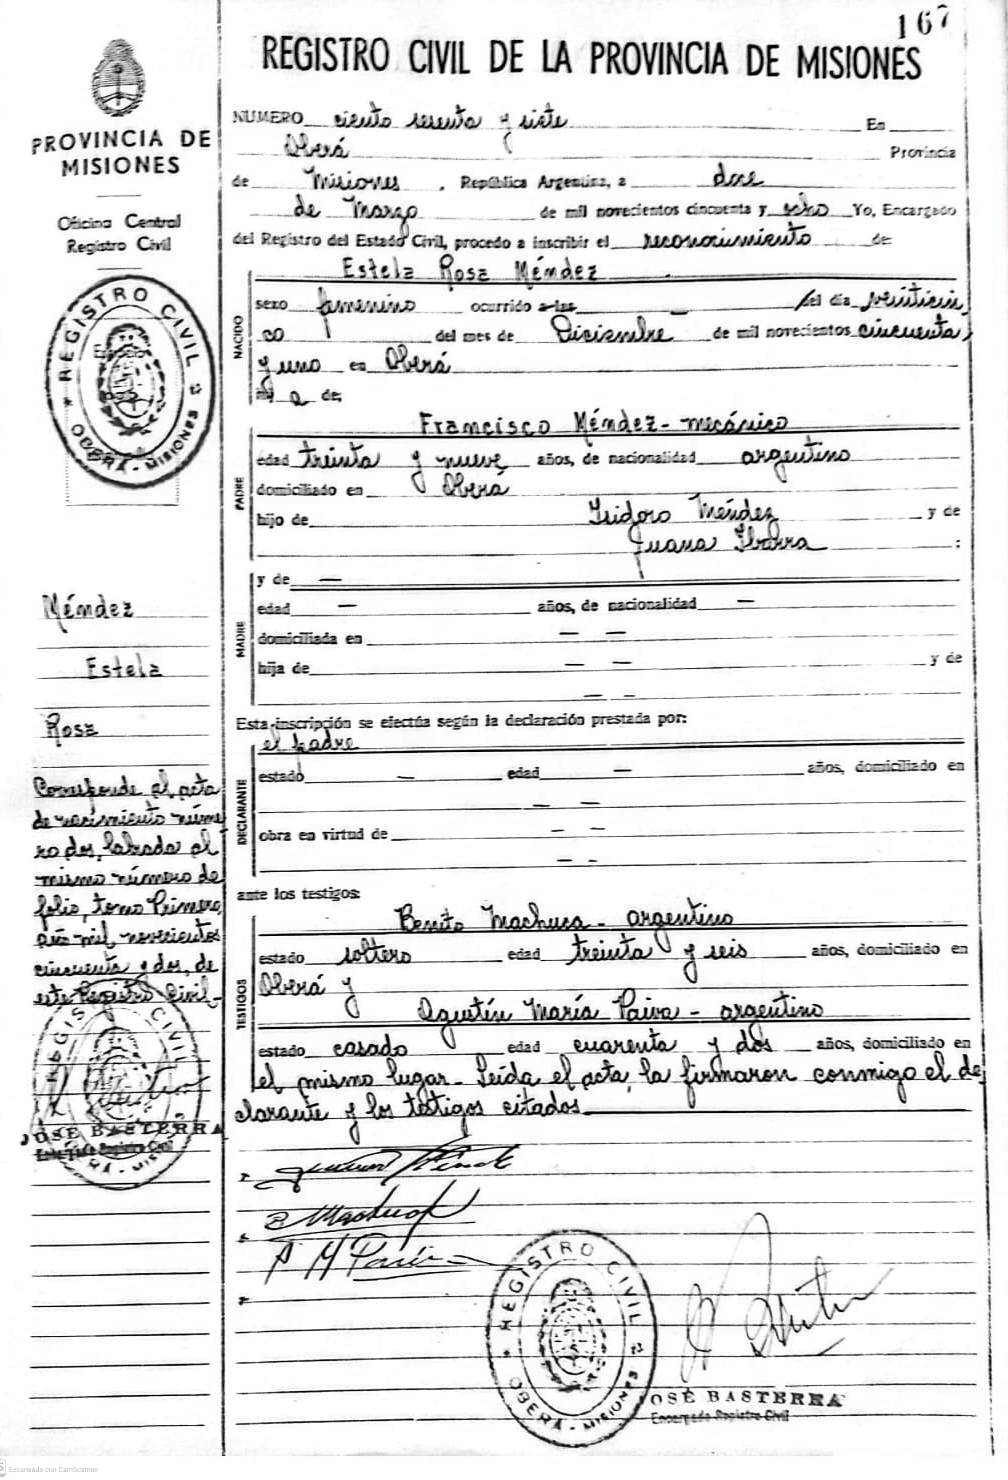 167
REGISTRO CIVIL DE LA PROVINCIA DE MISIONES
PROVINCIA DE
MISIONES
Oficina Central
Registro Civil
REGISTRO CIVIL
OBERÁ - MISIONES
Méndez
Estela
Rosa
Corresponde al acta
de nacimiento núme
ro dos, labrada al
mismo número de
folio, tomo Primero,
año mil novecientos
cincuenta y dos, de
este Registro Civil-
REGISTRO CIVIL
JOSÉ BASTERRA
Encargado Registro Civil
NUMERO ciento sesenta y siete En
Oberá Provincia
de Misiones, República Argentina, a doce
de Marzo de mil novecientos cincuenta y ocho Yo, Encargado
del Registro del Estado Civil, procedo a inscribir el reconocimiento de:
NACIDO
Estela Rosa Méndez
sexo femenino ocurrido a las — del día veinticin
co del mes de Diciembre de mil novecientos cincuenta
y uno en Oberá
hij a de:
PADRE
Francisco Méndez - mecánico
edad treinta y nueve años, de nacionalidad argentino
domiciliado en Oberá
hijo de Isidoro Méndez y de
Juana Ibarra ;
MADRE
y de —
edad — años, de nacionalidad —
domiciliada en — —
hija de — — y de
— —
Esta inscripción se efectúa según la declaración prestada por:
DECLARANTE
el padre
estado — edad — años, domiciliado en
— —
obra en virtud de — —
— —
ante los testigos:
TESTIGOS
Benito Machuca - argentino
estado soltero edad treinta y seis años, domiciliado en
Oberá y
Agustín María Paiva - argentino
estado casado edad cuarenta y dos años, domiciliado en
el mismo lugar - Leída el acta, la firmaron conmigo el de
clarante y los testigos citados
B Machuca
A M Paiva
REGISTRO CIVIL
OBERÁ - MISIONES
JOSÉ BASTERRA
Encargado Registro Civil
Escaneado con CamScanner